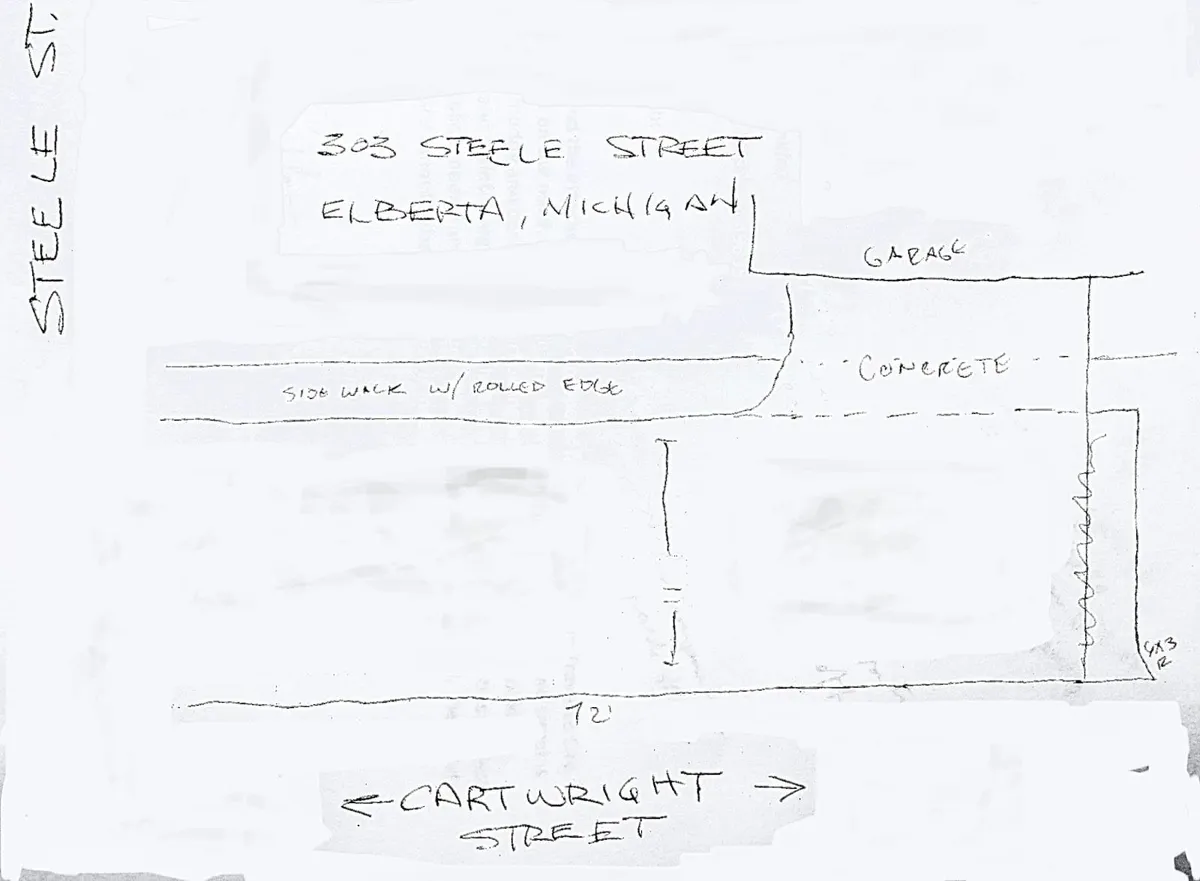 STEELE ST.
303 STEELE STREET
ELBERTA, MICHIGAN
GARAGE
CONCRETE
SIDEWALK W/ ROLLED EDGE
11
72'
← CARTWRIGHT →
STREET